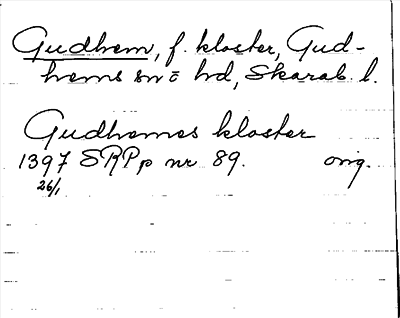 Gudhem, f. kloster, Gud-
hems sn o hd, Skarab. l.
Gudhemes kloster
1397 SRPp nr 89. orig.
26/1